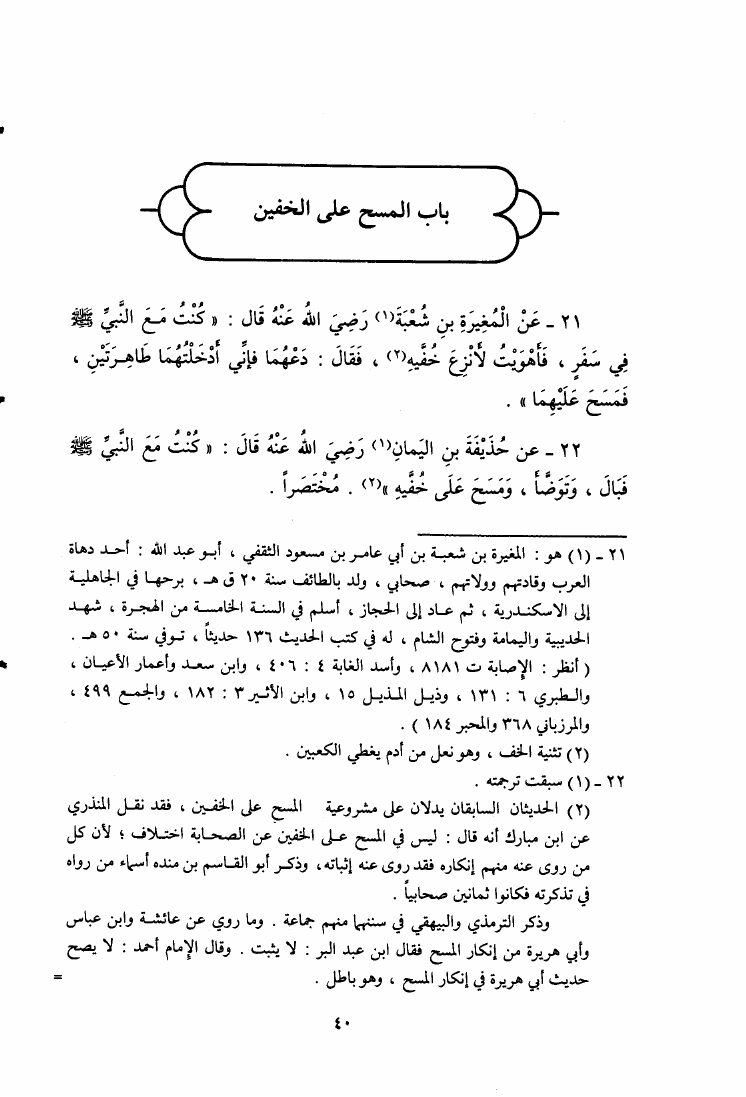 باب المسح على الخفين
٢١ - عَنْ الْمُغِيرَةِ بنِ شُعْبَةَ(١) رَضِيَ اللهُ عَنْهُ قَالَ : « كُنْتُ مَعَ النَّبِيِّ ﷺ
فِي سَفَرٍ ، فَأَهْوَيْتُ لأَنْزِعَ خُفَّيهِ(٢) ، فَقَالَ : دَعْهُمَا فإِنِّي أَدْخَلْتُهُمَا طَاهِرَتَيْنِ ،
فَمَسَحَ عَلَيْهِمَا » .
٢٢ - عن حُذَيْفَةَ بنِ اليَمانِ(١) رَضِيَ اللهُ عَنْهُ قَالَ : « كُنْتُ مَعَ النَّبيِّ ﷺ
فَبَالَ ، وَتَوَضَّأَ ، وَمَسَحَ عَلَى خُفَّيهِ »(٢) . مُخْتَصَراً .
٢١ - (١) هو : المغيرة بن شعبة بن أبي عامر بن مسعود الثقفي ، أبو عبد الله : أحد دهاة
العرب وقادتهم وولاتهم ، صحابي ، ولد بالطائف سنة ٢٠ ق هـ ، برحها في الجاهلية
إلى الاسكندرية ، ثم عاد إلى الحجاز ، أسلم في السنة الخامسة من الهجرة ، شهد
الحديبية واليمامة وفتوح الشام ، له في كتب الحديث ١٣٦ حديثاً ، توفي سنة ٥٠ هـ .
( أنظر : الإصابة ت ٨١٨١ ، وأسد الغابة ٤ : ٤٠٦ ، وابن سعد وأعمار الأعيان ،
والطبري ٦ : ١٣١ ، وذيل المذيل ١٥ ، وابن الأثير ٣ : ١٨٢ ، والجمع ٤٩٩ ،
والمرزباني ٣٦٨ والمحبر ١٨٤ ) .
(٢) تثنية الخف ، وهو نعل من أدم يغطي الكعبين .
٢٢ - (١) سبقت ترجمته .
(٢) الحديثان السابقان يدلان على مشروعية المسح على الخفين ، فقد نقل المنذري
عن ابن مبارك أنه قال : ليس في المسح على الخفين عن الصحابة اختلاف ؛ لأن كل
من روى عنه منهم إنكاره فقد روى عنه إثباته ، وذكر أبو القاسم بن منده أسماء من رواه
في تذكرته فكانوا ثمانين صحابياً .
وذكر الترمذي والبيهقي في سننهما منهم جماعة . وما روي عن عائشة وابن عباس
وأبي هريرة من إنكار المسح فقال ابن عبد البر : لا يثبت . وقال الإمام أحمد : لا يصح
حديث أبي هريرة في إنكار المسح ، وهو باطل . =
٤٠